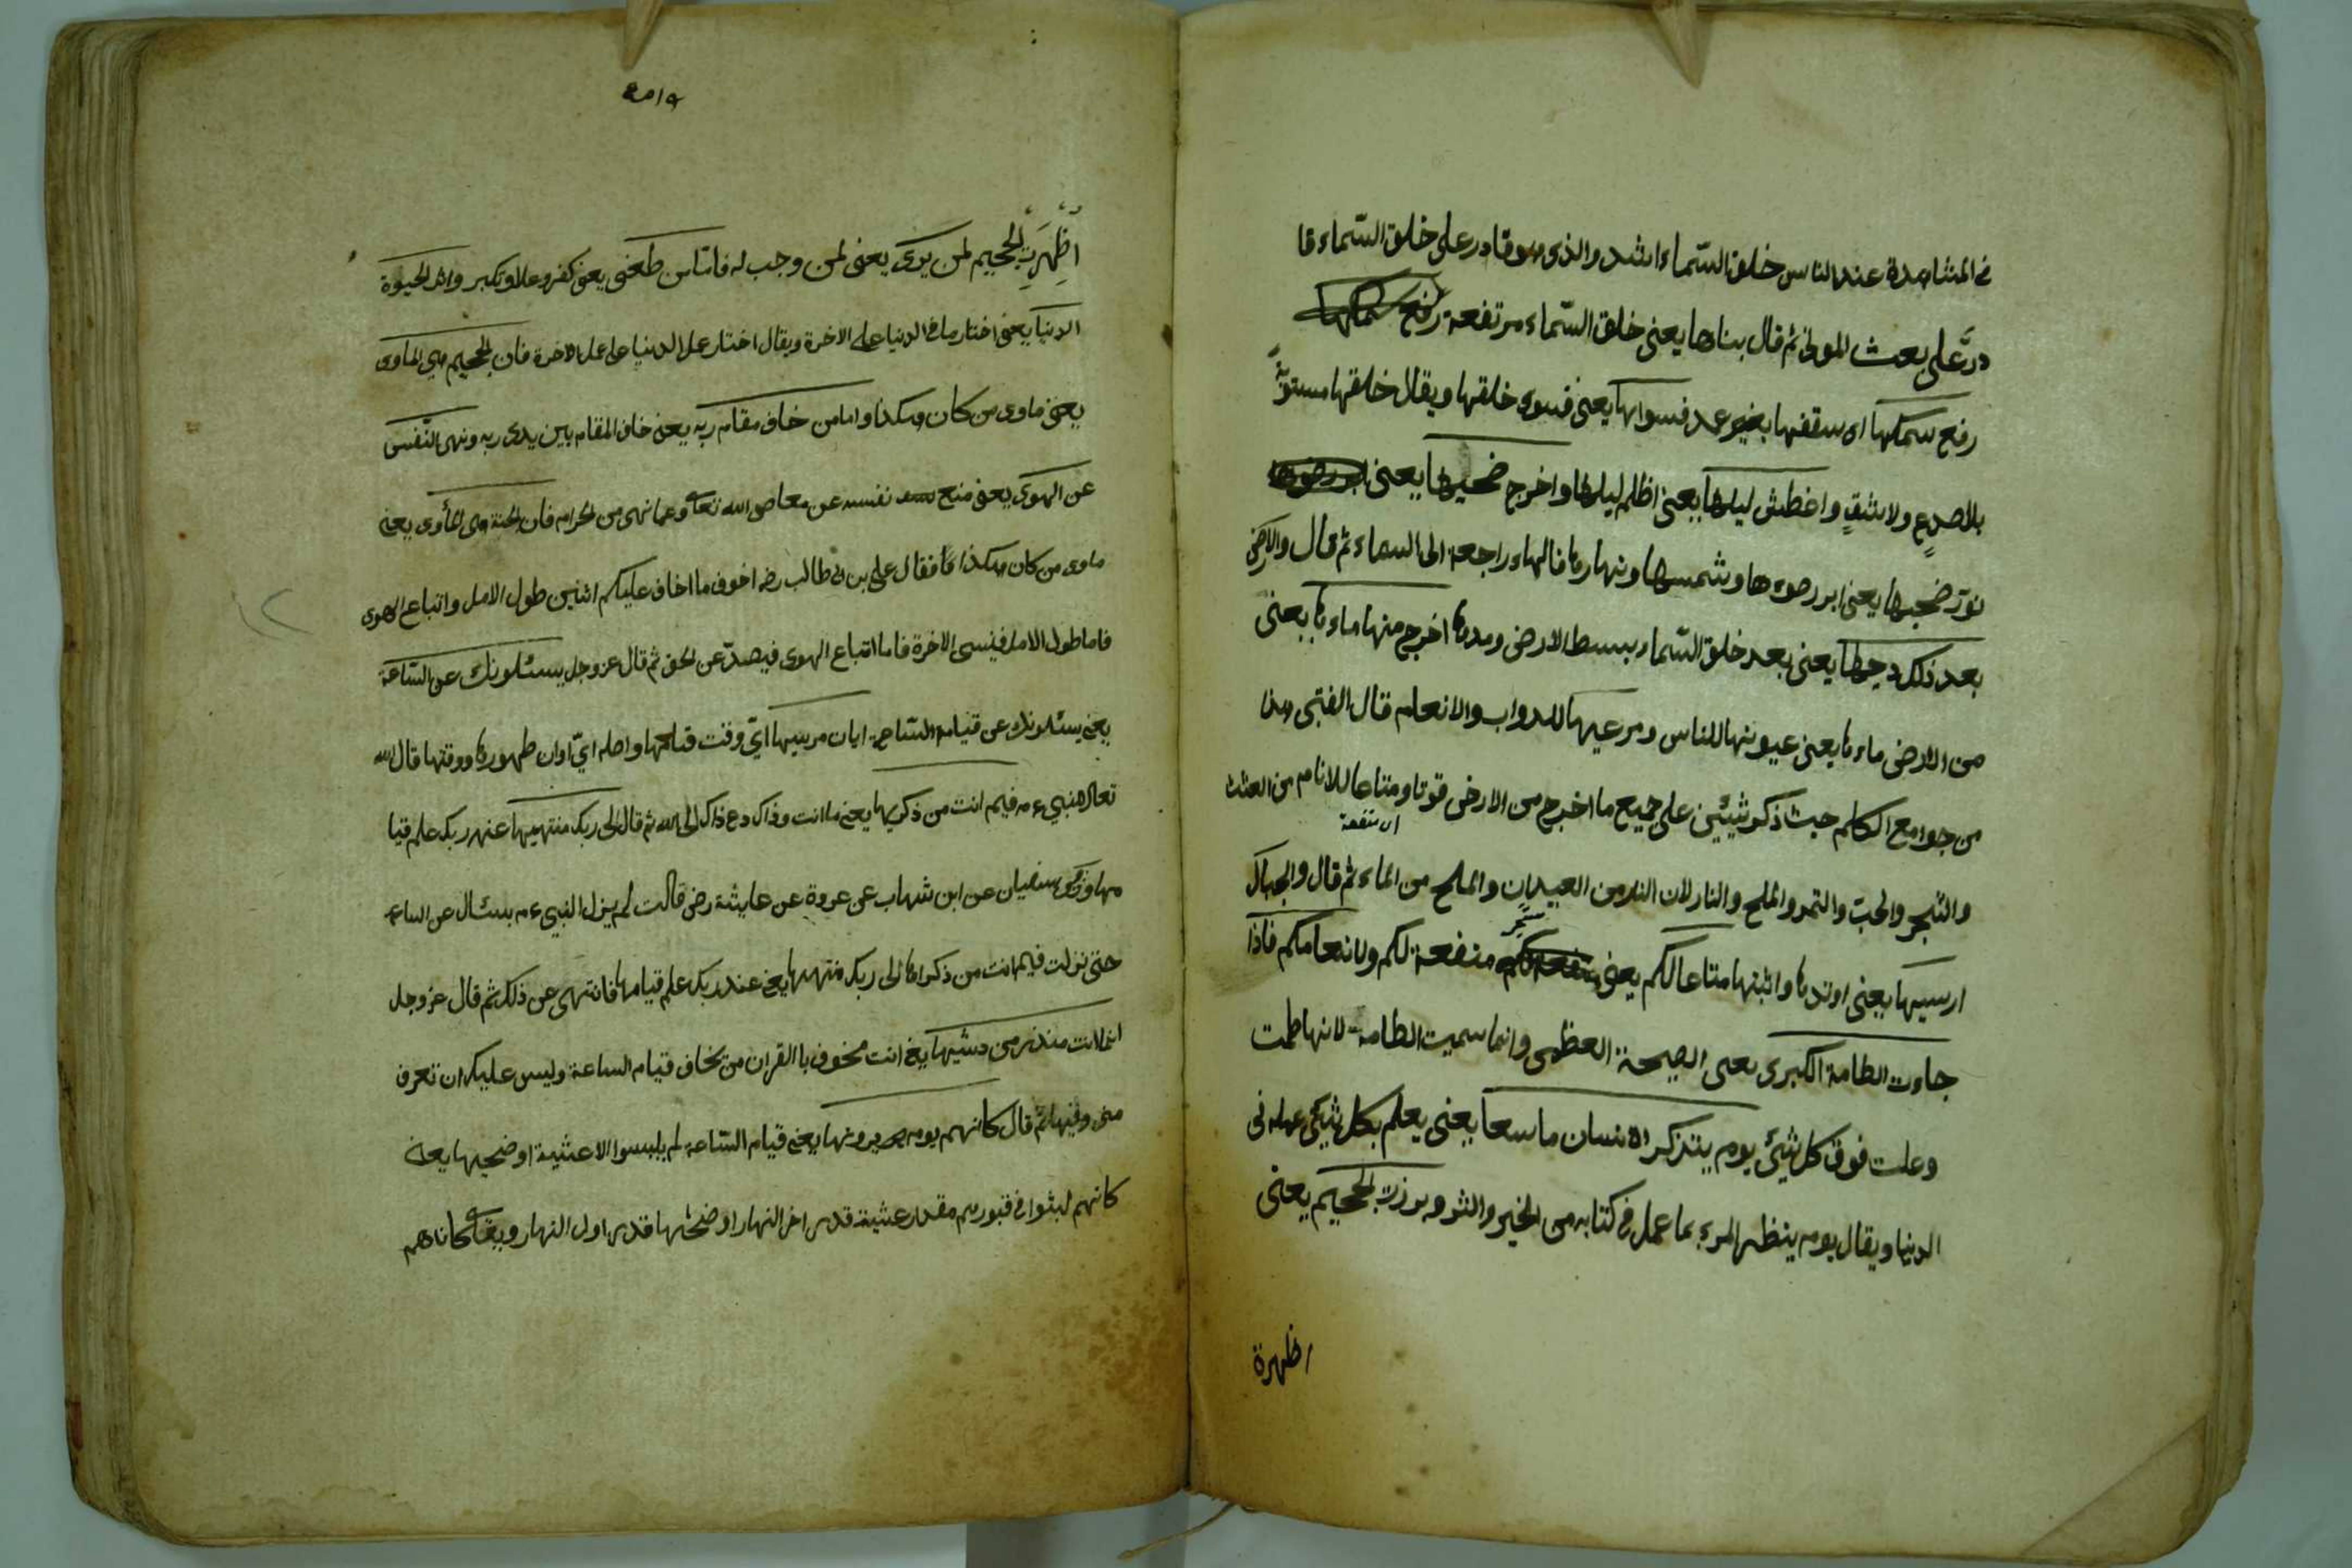 فى المشاهدة عند الناس خلق السّماء اشد والذى هو قادر على خلق السّماء قا
درٌ على بعث الموتى ثم قال بناها يعنى خلق السّماء مرتفعة رفع سمكها
رفع سمكها اى سقفها بغير عمد فسواها يعنى فسوى خلقها ويقال خلقها مستويةً
بلا صدعٍ ولا شقٍ واغطش ليلها يعنى اظلم ليلها واخرج ضحيها يعنى ابرز ضوءها
نورَ ضحيها يعنى ابرز ضوءها وشمسها ونهارها فالهاء راجعة الى السماء ثم قال والارض
بعد ذلك دحيها يعنى بعد خلق السّماء بسط الارض ومدها اخرج منها ماءها يعنى
من الارض ماءها يعنى عيونها للناس ومرعيها للدواب والانعام قال القتبى هذا
من جوامع الكلم حيث ذكر شيئين على جميع ما اخرج من الارض قوتا ومتاعا للانام من العشب
اى منفعة
والشجر والحبّ والتمر والملح والنار لان النار من العيدان والملح من الماء ثم قال والجبال
ارسيها يعنى اوتدها واثبتها متاعا لكم يعنى منفعة لكم ولانعامكم فاذا
جاءت الطامة الكبرى يعنى الصيحة العظمى وانما سميت الطامة لانها طمت
وعلت فوق كل شيئ يوم يتذكر الانسان ما سعا يعنى يعلم بكل شيئ عمله فى
الدنيا ويقال يوم ينظر المرء بما عمل فى كتابه من الخير والشر وبرزت الجحيم يعنى
اظهرة
اُظْهِرَتِ الجحيم لمن يرى يعنى لمن وجب له فاما من طغى يعنى كفر وعلا وتكبر واثر الحيوة
الدنيا يعنى اختار ما فى الدنيا على الاخرة ويقال اختار عمل الدنيا على عمل الاخرة فان الجحيم هى الماوى
يعنى ماوى من كان هكذا واما من خاف مقام ربه يعنى خاف المقام بين يدى ربه ونهى النّفس
عن الهوى يعنى منع نفسه عن معاصى الله تعا وعما نهى من الحرام فان الجنة هى المأوى يعنى
ماوى من كان هكذا فقال على بن ابى طالب رضه اخوف ما اخاف عليكم اثنين طول الامل واتباع الهوى
فاما طول الامل فينسى الاخرة فاما اتباع الهوى فيصدّ عن الحق ثم قال عز وجل يسئلونك عن السّاعة
يعنى يسئلونك عن قيام السّاعة ايان مرسيها اىّ وقت قيامها واصله اىّ اوان ظهورها ووقتها قال الله
تعالى لنبيه عم فيم انت من ذكريها يعنى ما انت وذاك دع ذاك الى الله ثم قال الى ربك منتهيها عند ربك علم قيا
مها وذكر سفيان عن ابن شهاب عن عروة عن عايشة رض قالت لم يزل النبى عم يسئال عن الساعة
حتى نزلت فيم انت من ذكراها الى ربك منتهيها يعنى عند ربك علم قيامها فانتهى عن ذلك ثم قال عز وجل
انما انت منذر من يخشيها يعنى انت مخوف باالقران من يخاف قيام الساعة وليس عليك ان تعرف
متى وقتها ثم قال كانهم يوم يرونها يعنى قيام السّاعة لم يلبسوا الا عشية او ضحيها يعنى
كانهم لبثوا فى قبورهم مقدار عشية قدر اخر النهار او ضحيها قدر اول النهار ويقا كاناهم